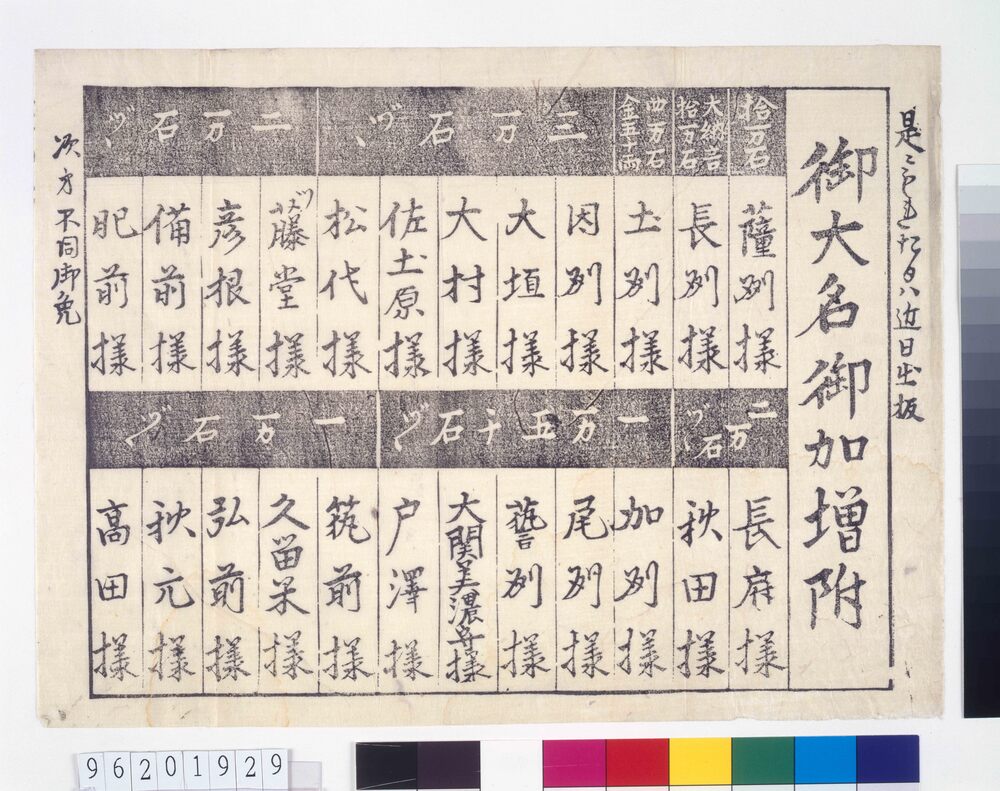 近日出板
御大名御加増附
拾万石
薩州様
大納言
拾万石
長州様
四万石
金五十両
土州様
三万石ヅヽ
因州様
大垣様
大村様
佐土原様
松代様
二万石ヅヽ
藤堂様
彦根様
備前様
肥前様
二万石ヅヽ
長府様
秋田様
一万五千石ヅヽ
加州様
尾州様
藝州様
大関美濃守様
戸澤様
一万石ヅヽ
筑前様
久留米様
弘前様
秋元様
高田様
次才不同御免
96201929